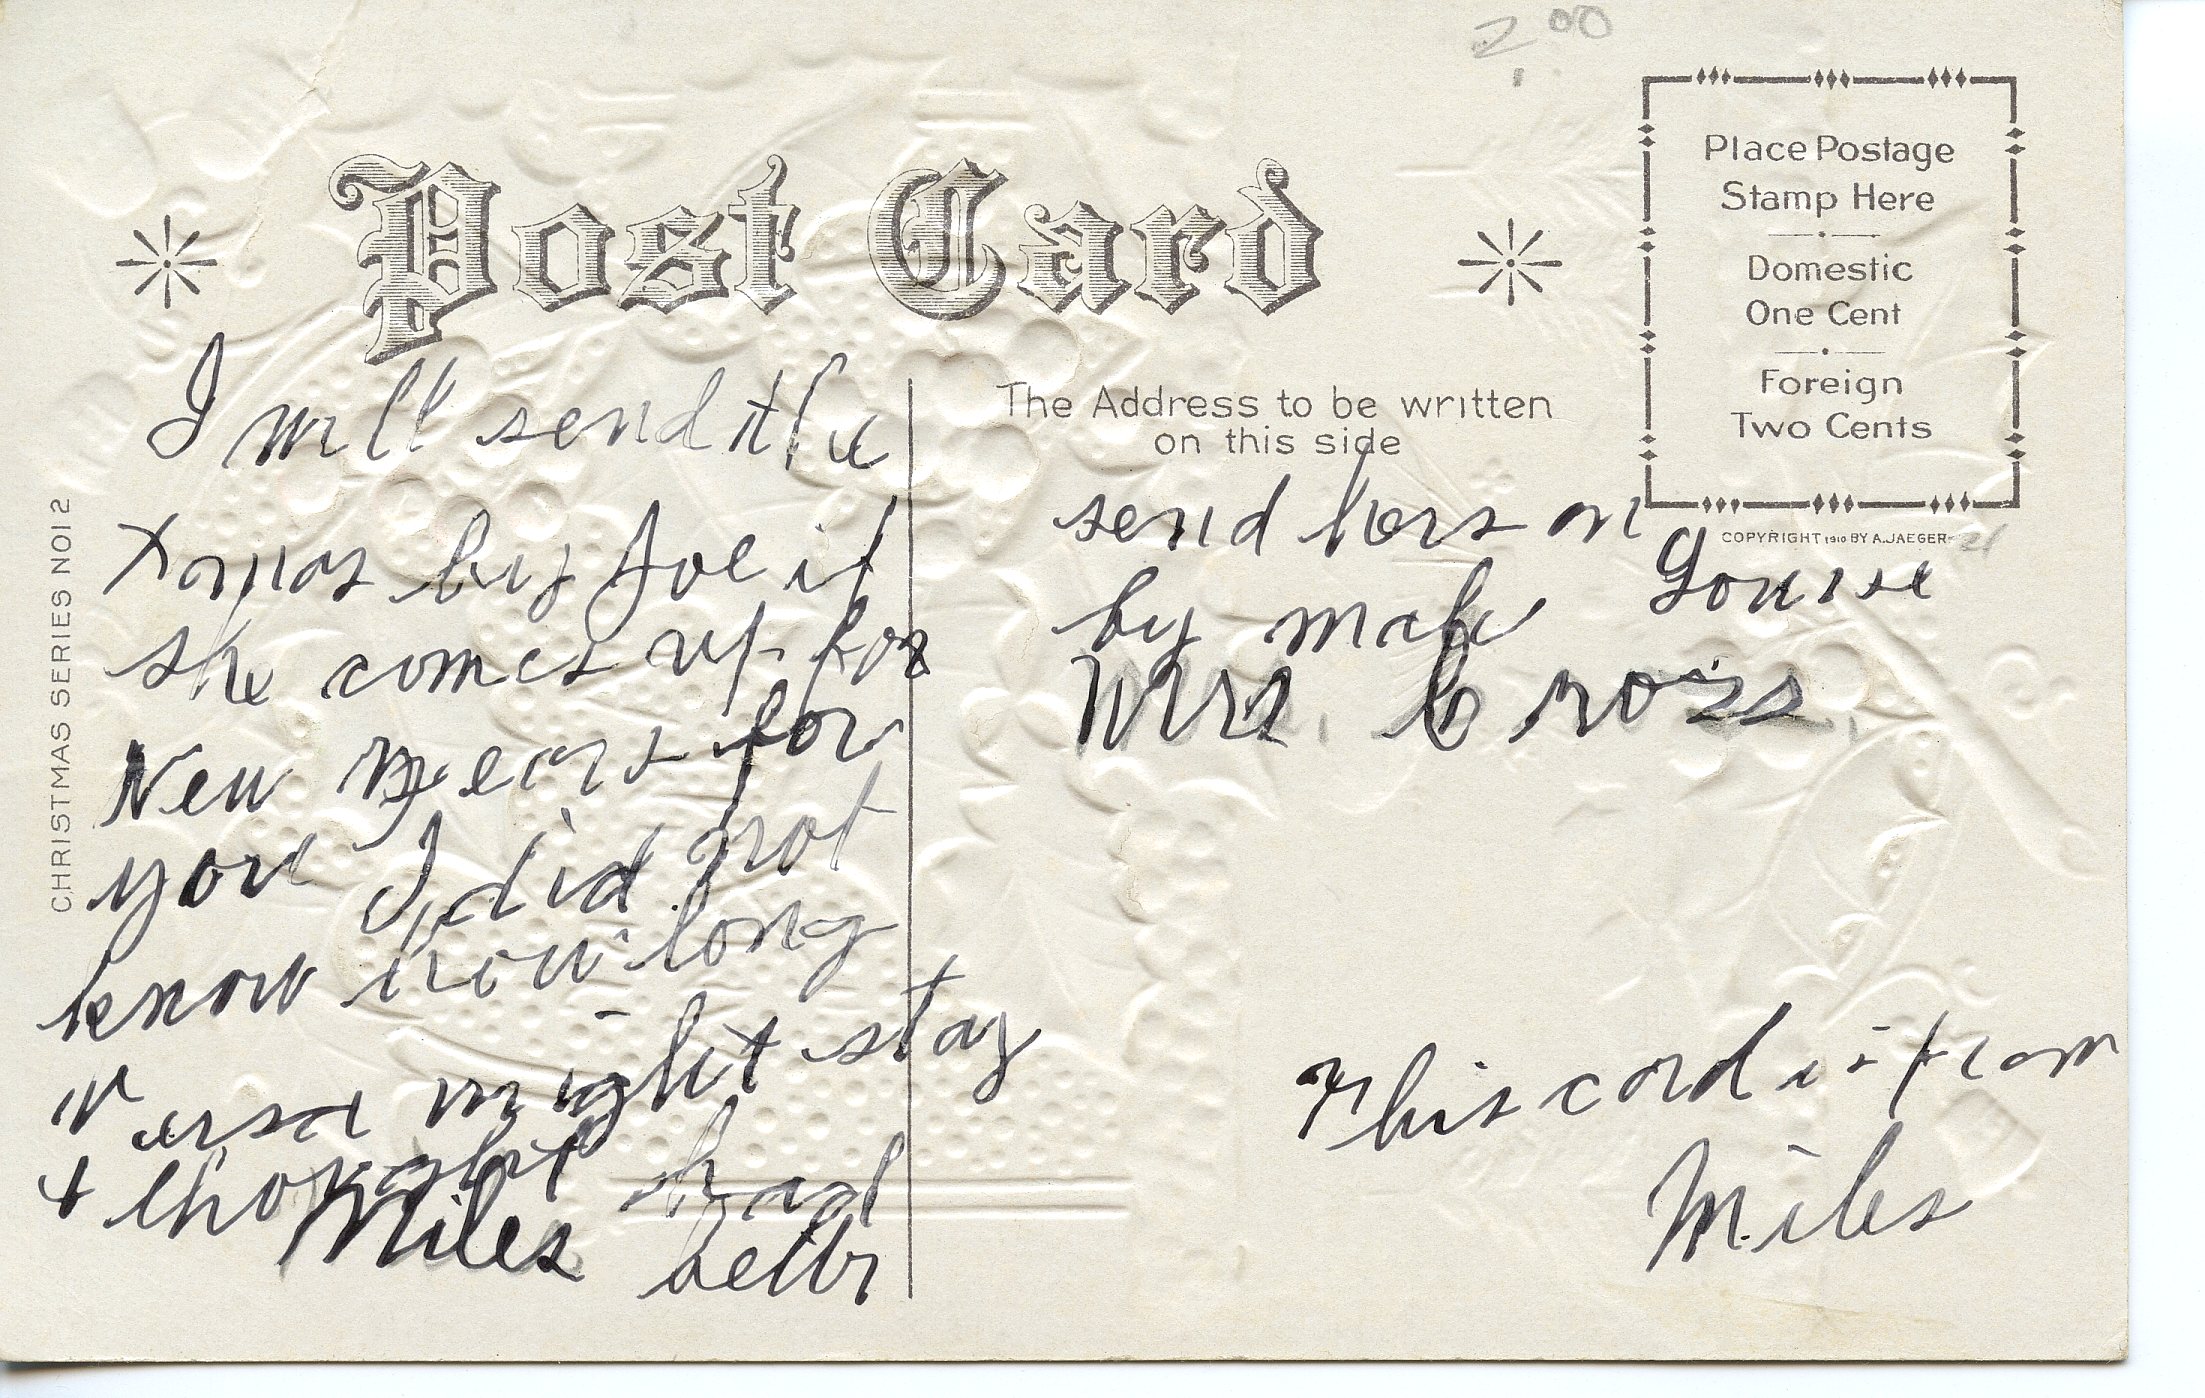 2.00
Post Card
Place Postage
Stamp Here
Domestic
One Cent
Foreign
Two Cents
COPYRIGHT 1910 BY A. JAEGER
CHRISTMAS SERIES NO 12
The Address to be written
on this side
I will send the
Xmas by Joe if
she comes up for
New Years for
you I did not
know how long
might stay
+ thought I had
Miles better
send hers on
by male Louise
Mrs. Cross
This card is from
Miles